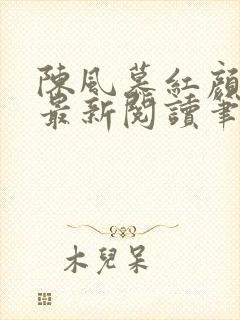 陳風暮紅顏
最新閱讀筆
木兒呆